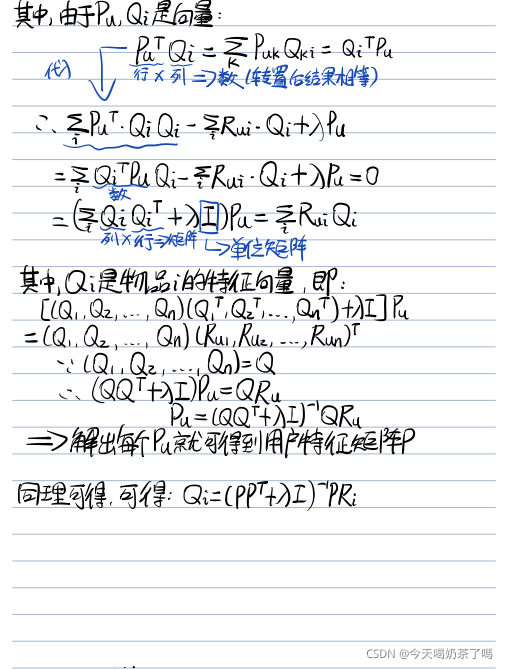 其中,由于Pu,Qi是向量:
Pu^T Qi = ∑_k Puk Qki = Qi^T Pu
代入 行×列 ⇒数(转置后结果相等)
∴ ∑_i Pu^T·Qi Qi - ∑_i Rui·Qi + λPu
= ∑_i Qi^T Pu Qi - ∑_i Rui·Qi + λPu = 0
数
= (∑_i Qi Qi^T + λI)Pu = ∑_i Rui Qi
列×行⇒矩阵 ↳单位矩阵
其中,Qi是物品i的特征向量,即:
[(Q1,Q2,...,Qn)(Q1^T,Q2^T,...,Qn^T)+λI]Pu
= (Q1,Q2,...,Qn)(Ru1,Ru2,...,Run)^T
∵ (Q1,Q2,...,Qn)=Q
∴ (QQ^T+λI)Pu=QRu
Pu=(QQ^T+λI)^-1QRu
⇒ 解出每个Pu就可得到用户特征矩阵P
同理可得,可得: Qi=(PP^T+λI)^-1PRi
CSDN @今天喝奶茶了嗎